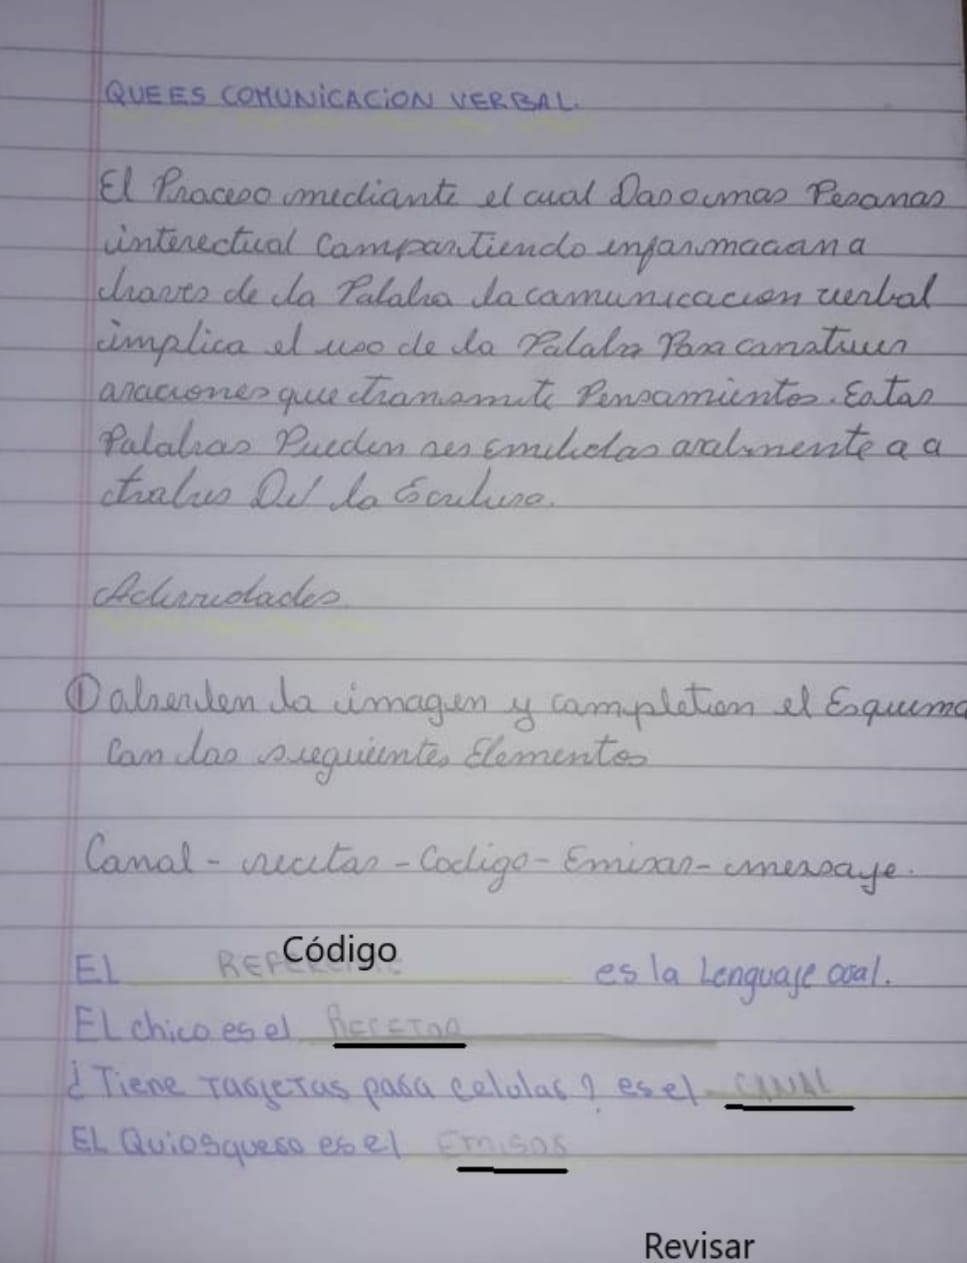 QUE ES COMUNICACION VERBAL.
El Proceso mediante el cual Dos o mas Pesonas
interectual Compartiendo informacion a
traves de la Palabra la comunicacion verbal
implica el uso de la Palabra Para construir
oraciones que transmite Pensamientos. Estas
Palabras Pueden ser Emitidas oralmente a a
traves Del la Escritura.
Actividades
① observen la imagen y completen el Esquema
Con los siguientes Elementos
Canal - recetor - Codigo - Emisor - mensaje.
EL Código es la Lenguaje oral.
EL chico es el RECETOR
¿Tiene TARJETAS para celular? es el CANAL
EL Quiosquero es el Emisor
Revisar